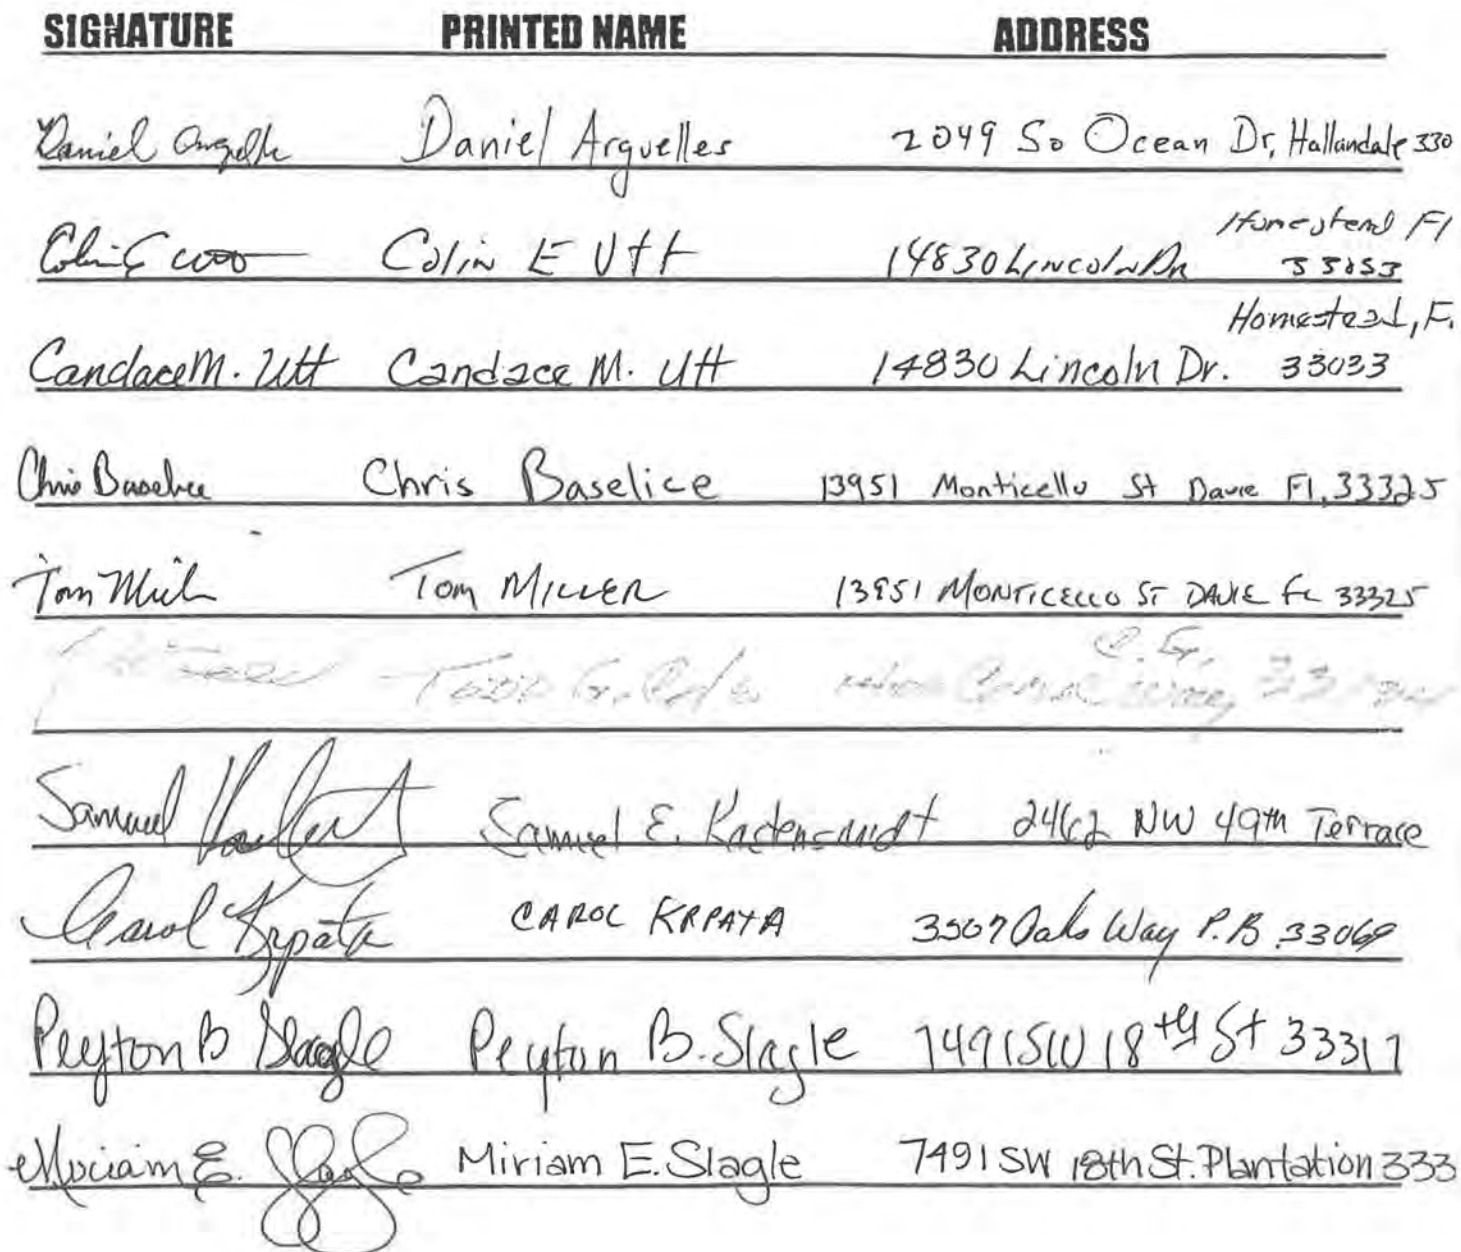 SIGNATURE PRINTED NAME ADDRESS
Daniel Arguelles Daniel Arguelles 2049 So Ocean Dr, Hallandale 330
Homestead Fl
Colin E Utt Colin E Utt 14830 Lincoln Dr 33033
Homestead, F.
Candace M. Utt Candace M. Utt 14830 Lincoln Dr. 33033
Chris Baselice Chris Baselice 13951 Monticello St Davie Fl, 33325
Tom Miller Tom MILLER 13951 MONTICELLO ST DAVIE FL 33325
C. G.
Todd G.
Samuel Samuel E. 2462 NW 49th Terrace
Carol Krpata CAROL KRPATA 3507 Oaks Way P.B. 33069
Peyton B Slagle Peyton B. Slagle 7491 SW 18th St 33317
Miriam E. Slagle Miriam E. Slagle 7491 SW 18th St. Plantation 333